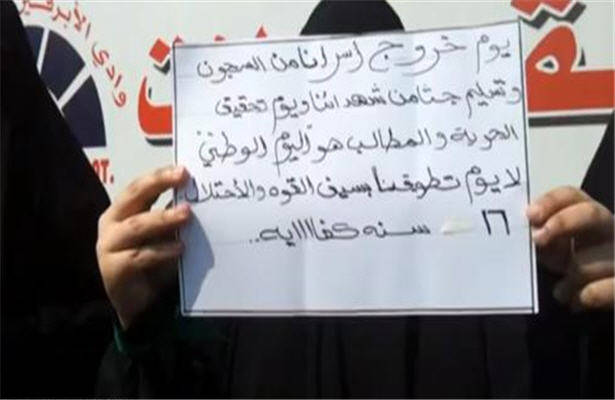 يوم خروج اسرانا من السجون
وتسليم جثامن شهدائنا ويوم تحقيق
الحرية والمطالب هو اليوم الوطني
لا يوم تطوقنا بسيف القوه والأحتلال
١٦ سنه كفاااايه..
وادي الأبرقين